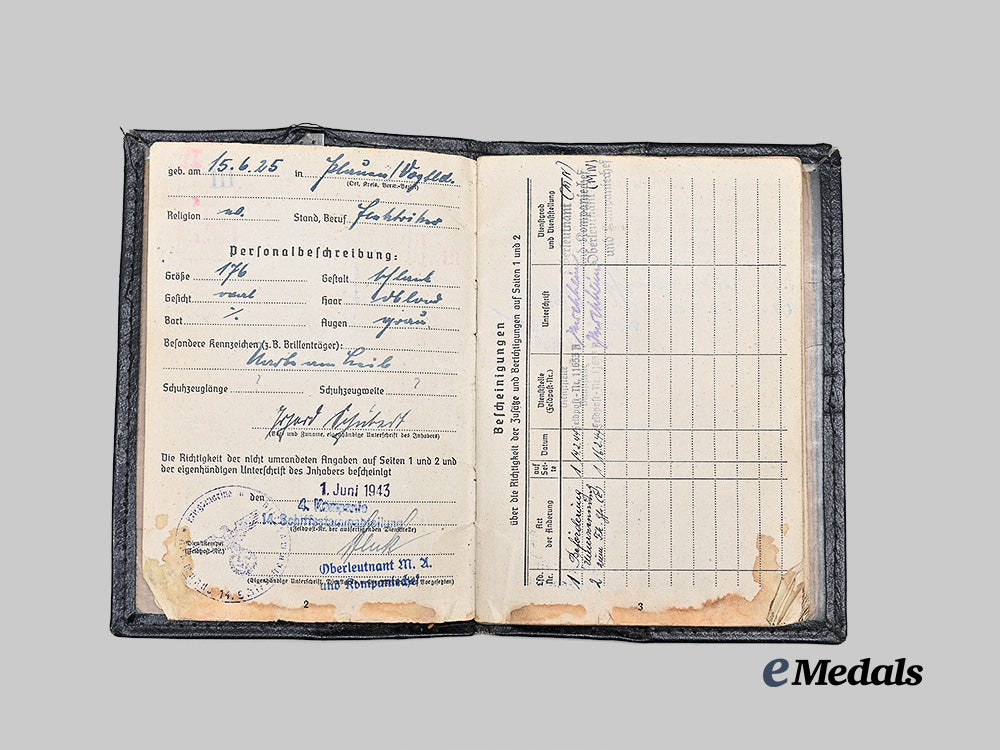 geb. am 15.6.25 in Plauen/Vogtld.
(Ort, Kreis, Verw.-Bezirk)
Religion ev. Stand, Beruf Elektriker
Personalbeschreibung:
Größe 176 Gestalt schlank
Gesicht oval Haar dblond
Bart ./. Augen grau
Besondere Kennzeichen (z.B. Brillenträger):
Narbe am
Schuhzeuglänge ? Schuhzeugweite ?
Schubert
(Vor- und Zuname, eigenhändige Unterschrift des Inhabers)
Die Richtigkeit der nicht umrandeten Angaben auf Seiten 1 und 2 und
der eigenhändigen Unterschrift des Inhabers bescheinigt
den 1. Juni 1943
4. Kompanie
14. Schiffsstammabteilung
(Feldpost-Nr. der ausfertigenden Dienststelle)
(Dienststempel)
(Feldpost-Nr.)
Kriegsmarine
Oberleutnant M. A.
und Kompaniechef
(Eigenhändige Unterschrift, Vorgesetzten)
2
Bescheinigungen
über die Richtigkeit der Zusätze und Berichtigungen auf Seiten 1 und 2
Lfd. Nr. Art der Änderung auf Seite Datum Dienststelle (Feldpost-Nr.) Unterschrift Dienstgrad und Dienststellung
1 Beförderung 1 Feldpost-Nr. Oberleutnant (MN)
und Kompaniechef
2 1 Feldpost-Nr. Oberleutnant (MN)
und Kompaniechef
3
eMedals